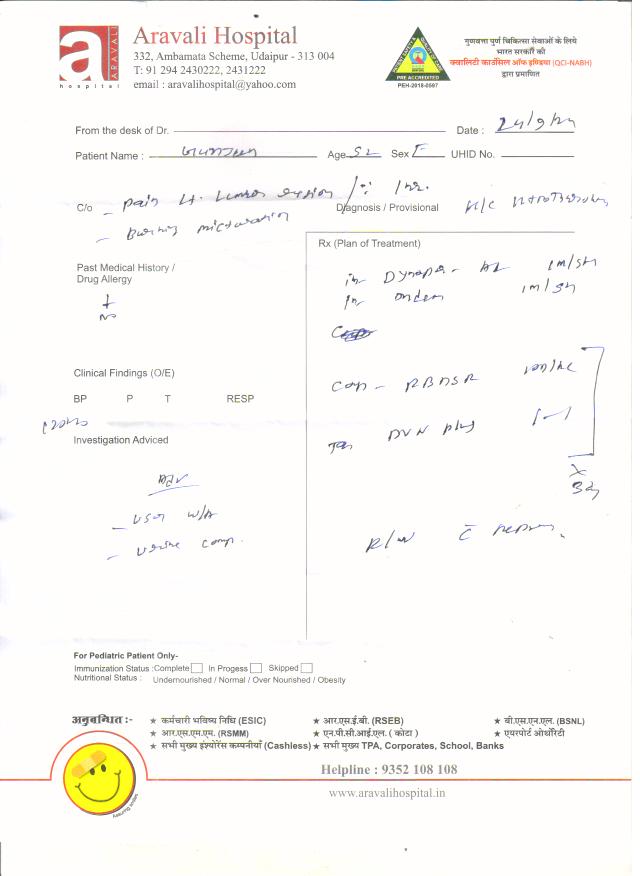 a
ARAVALI
hospital
Aravali Hospital
332, Ambamata Scheme, Udaipur - 313 004
T: 91 294 2430222, 2431222
email : aravalihospital@yahoo.com
PRE ACCREDITED
PEH-2018-0597
गुणवत्ता पुर्ण चिकित्सा सेवाओं के लिये
भारत सरकार की
क्वालिटी काउंसिल ऑफ इण्डिया (QCI-NABH)
द्वारा प्रमाणित
From the desk of Dr. Date : 24/9/24
Patient Name : Age 52 Sex F UHID No.
C/o - Pain Lt. Lumbar region
- Burning micturation
Diagnosis / Provisional
Past Medical History /
Drug Allergy
Rx (Plan of Treatment)
Inj Dynapar - AQ 1m/Sh
Inj 1m/Sh
Clinical Findings (O/E)
BP P T RESP
Cap - RBDSR
Tab DVN Plus 1-1
Investigation Adviced
Adv
- USG W/A
- Urine Comp.
x
3d
R/w c̄
For Pediatric Patient Only-
Immunization Status : Complete In Progess Skipped
Nutritional Status : Undernourished / Normal / Over Nourished / Obesity
अनुबन्धित :-
★ कर्मचारी भविष्य निधि (ESIC) ★ आर.एस.ई.बी. (RSEB) ★ बी.एस.एन.एल. (BSNL)
★ आर.एस.एम.एम. (RSMM) ★ एन.पी.सी.आई.एल. ( कोटा ) ★ एयरपोर्ट ओथोंरिटी
★ सभी मुख्य इंश्योरेंस कम्पनीयाँ (Cashless) ★ सभी मुख्य TPA, Corporates, School, Banks
Helpline : 9352 108 108
Assuring smiles
www.aravalihospital.in